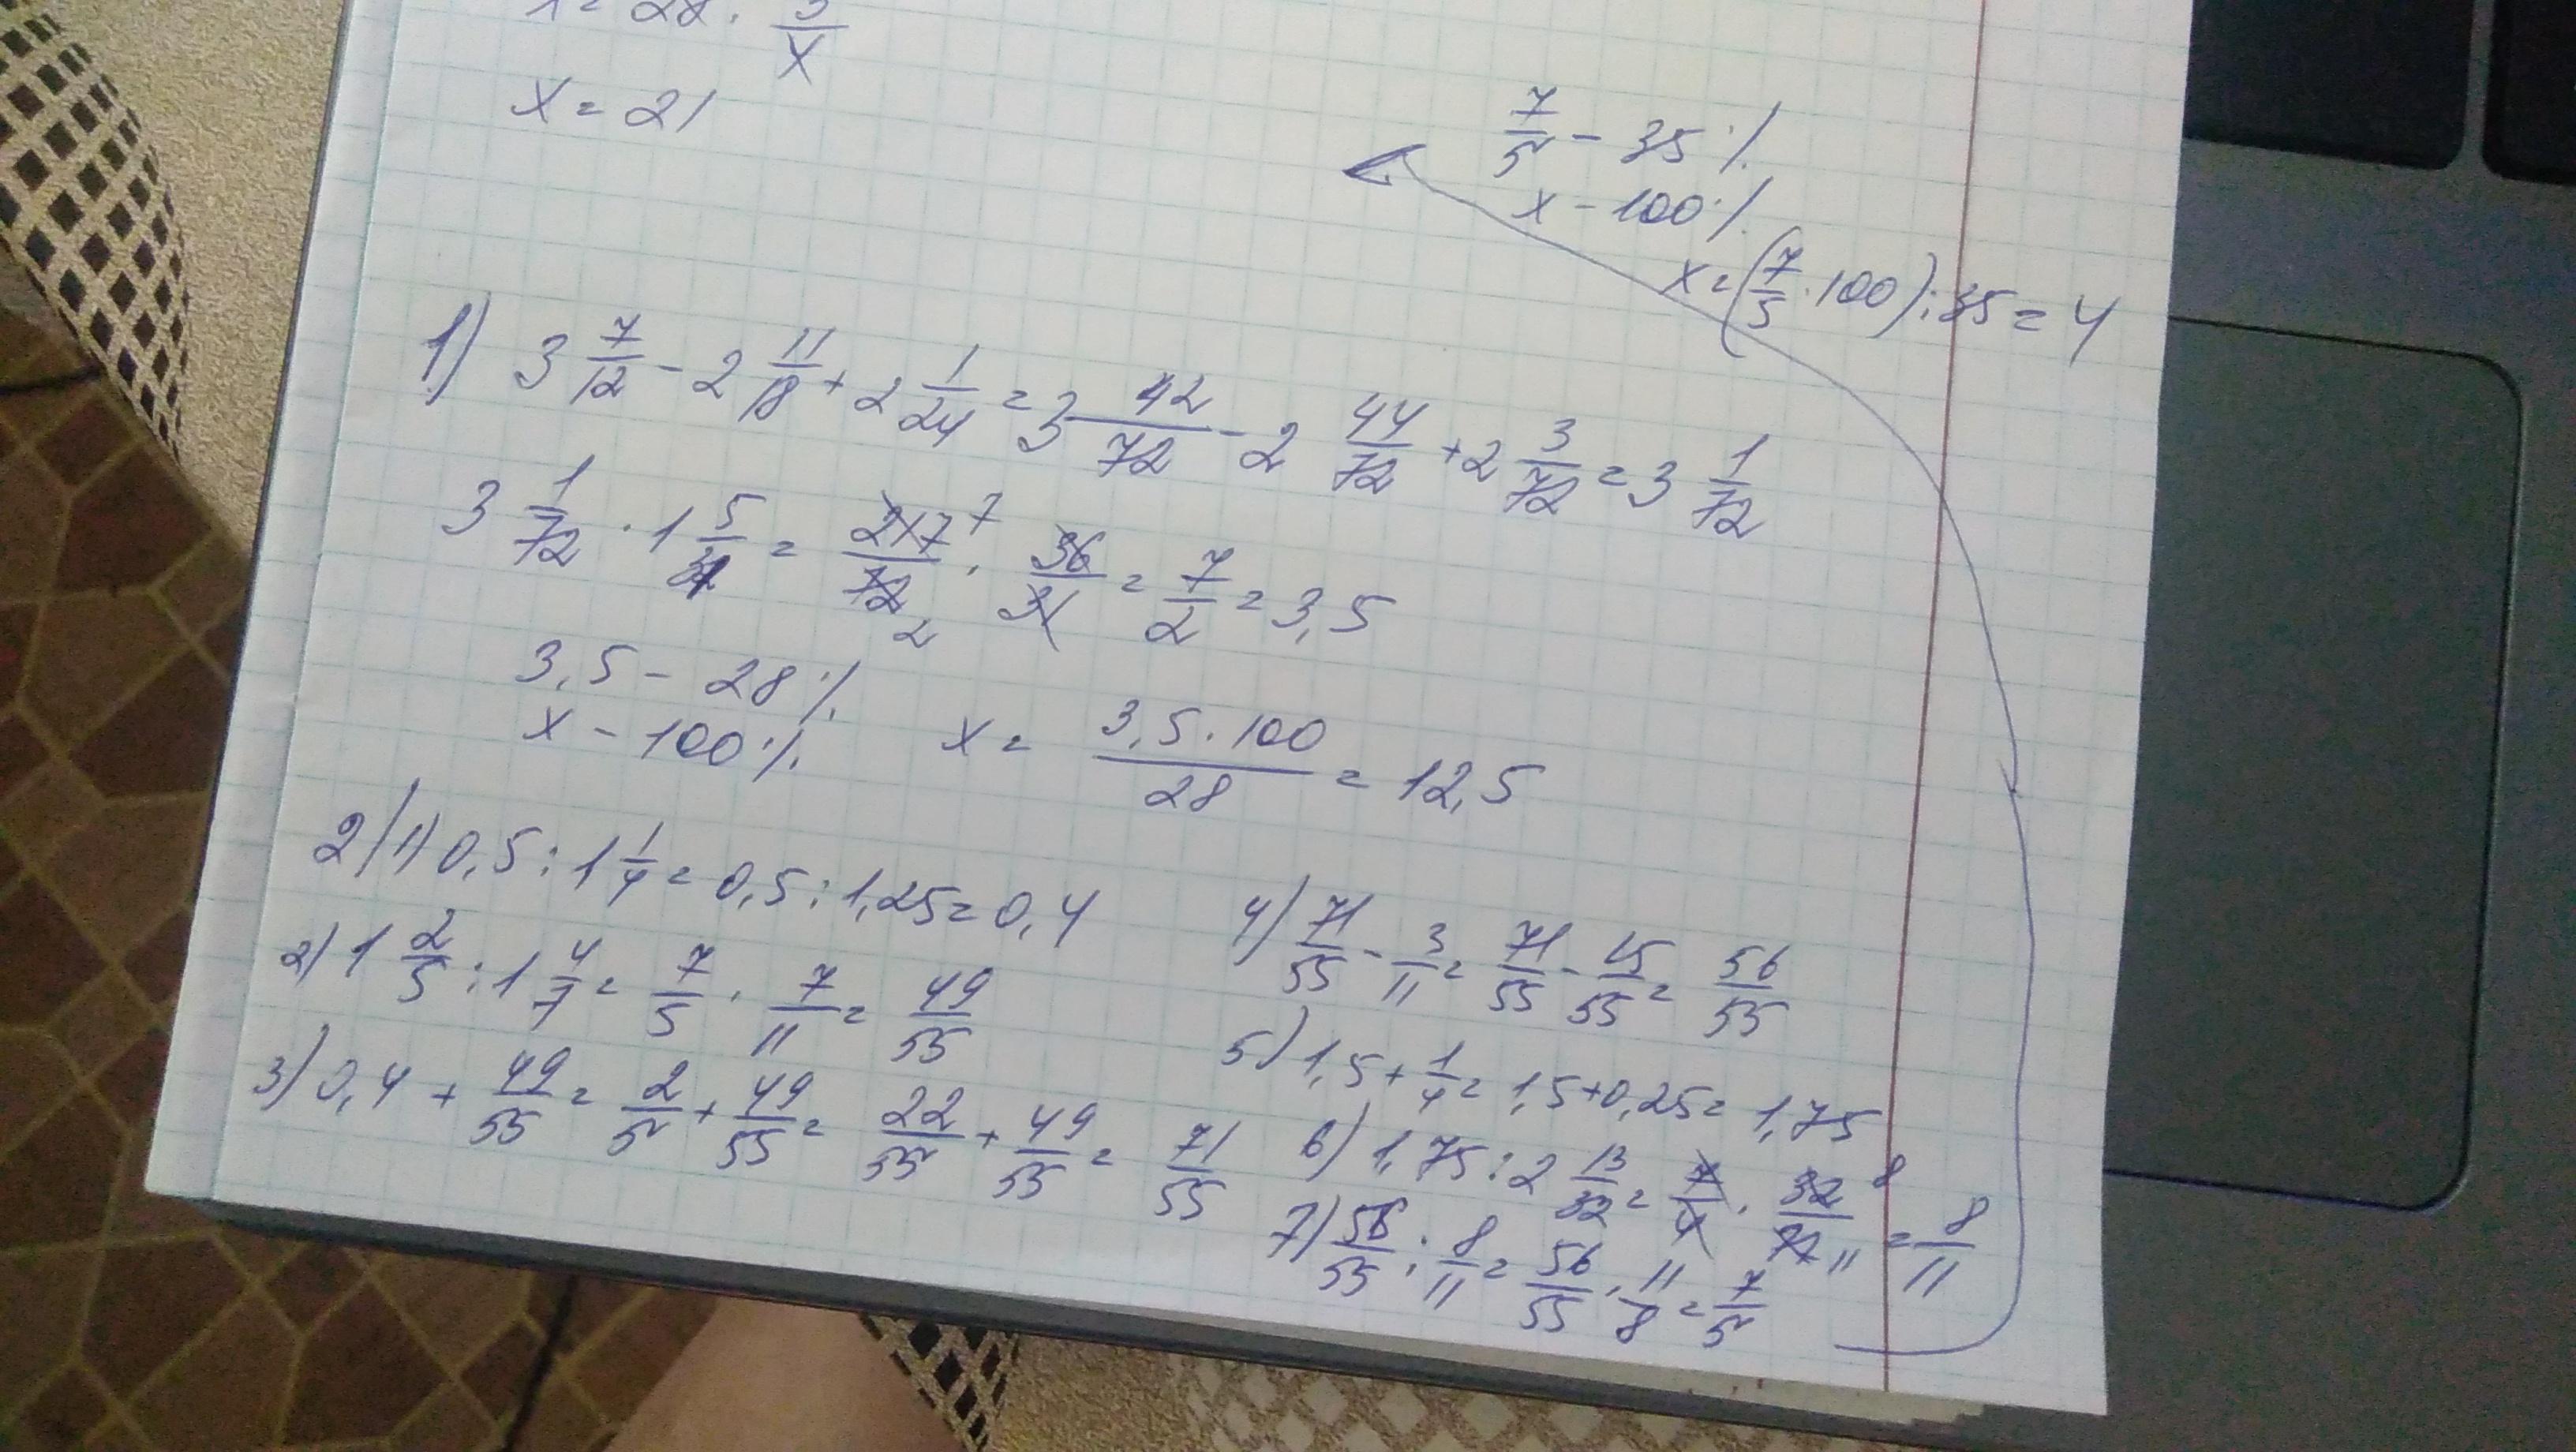 x = 21
7/5 - 35 %
x - 100 %
x = (7/5 · 100) : 35 = 4
1) 3 7/12 - 2 11/18 + 2 1/24 = 3 42/72 - 2 44/72 + 2 3/72 = 3 1/72
3 1/72 · 1 5/31 = 217/72 7 2 · 36/31 = 7/2 = 3,5
3,5 - 28 %
x - 100 % x = 3,5 · 100 / 28 = 12,5
2) 1) 0,5 : 1 1/4 = 0,5 : 1,25 = 0,4
2) 1 2/5 : 1 4/7 = 7/5 · 7/11 = 49/55
3) 0,4 + 49/55 = 2/5 + 49/55 = 22/55 + 49/55 = 71/55
4) 71/55 - 3/11 = 71/55 - 15/55 = 56/55
5) 1,5 + 1/4 = 1,5 + 0,25 = 1,75
6) 1,75 : 2 13/32 = 7/4 · 32/77 8 11 = 8/11
7) 56/55 : 8/11 = 56/55 · 11/8 = 7/5